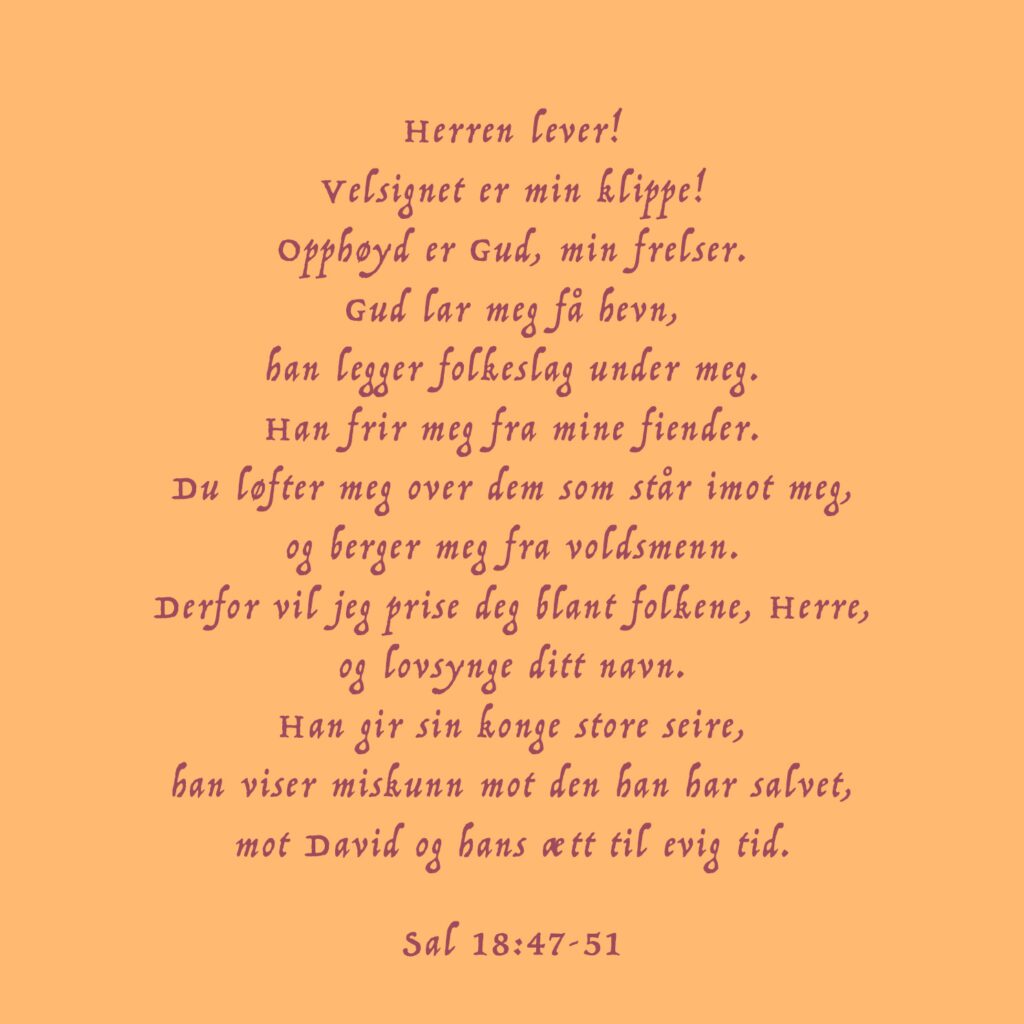 Herren lever!
Velsignet er min klippe!
Opphøyd er Gud, min frelser.
Gud lar meg få hevn,
han legger folkeslag under meg.
Han frir meg fra mine fiender.
Du løfter meg over dem som står imot meg,
og berger meg fra voldsmenn.
Derfor vil jeg prise deg blant folkene, Herre,
og lovsynge ditt navn.
Han gir sin konge store seire,
han viser miskunn mot den han har salvet,
mot David og hans ætt til evig tid.
Sal 18:47-51